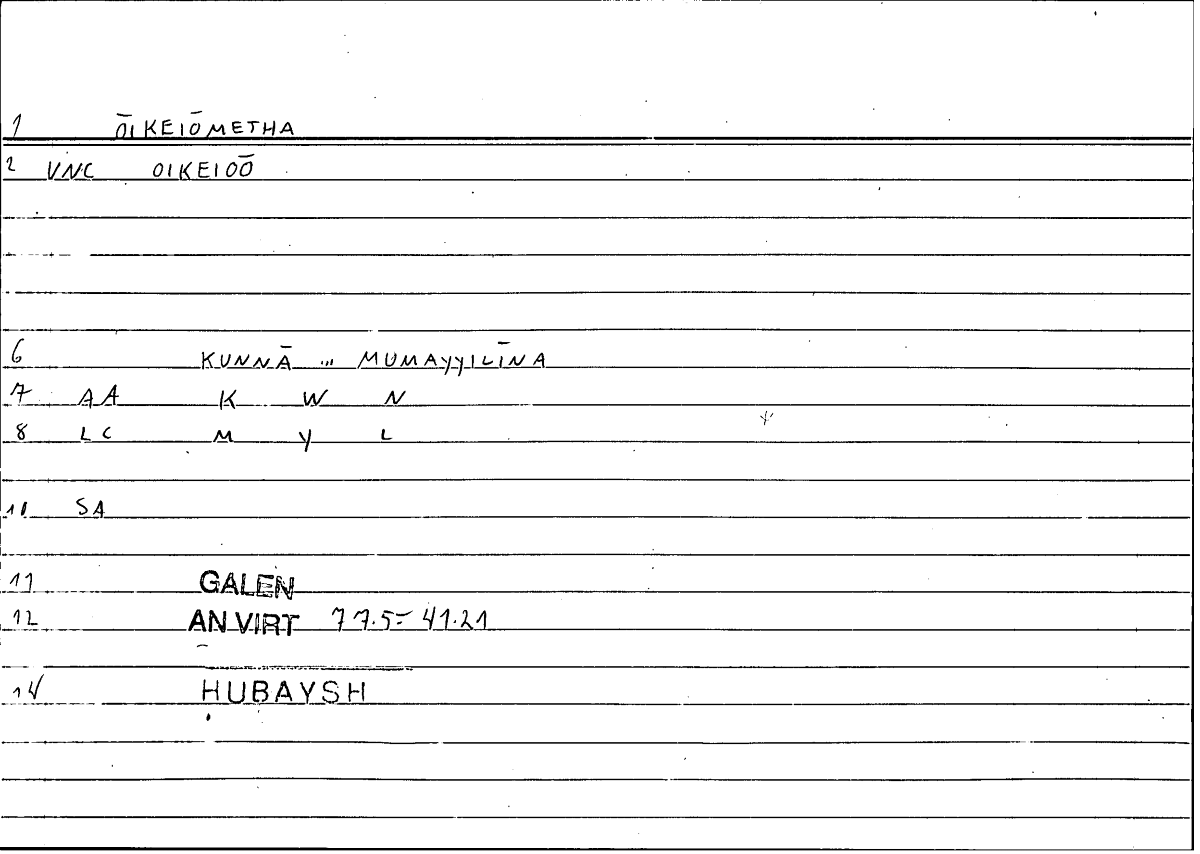 1 ŌIKEIŌMETHA
2 VNC OIKEIOŌ
6 KUNNĀ ... MUMAYYILĪNA
7 AA K W N
8 LC M Y L
10 SA
11 GALEN
12 AN VIRT 77.5 = 41.21
14 ḤUBAYSH